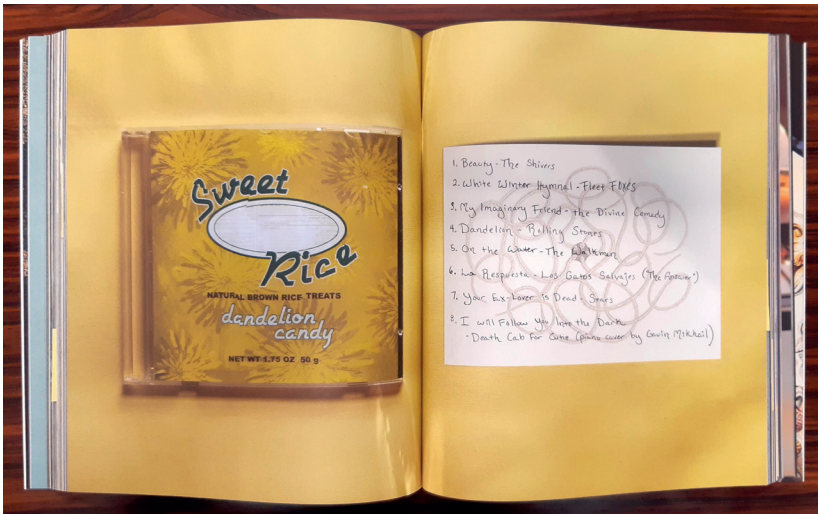 Sweet
Rice
NATURAL BROWN RICE TREATS
dandelion
candy
NET WT 1.75 OZ 50 g
1. Beauty - The Shivers
2. White Winter Hymnal - Fleet Foxes
3. My Imaginary Friend - the Divine Comedy
4. Dandelion - Rolling Stones
5. On the Water - The Walkman
6. La Respuesta - Los Gatos Salvajes ("The Answer")
7. Your Ex-Lover is Dead - Stars
8. I will Follow You Into the Dark
- Death Cab for Cutie (piano cover by Gavin Mikhail)